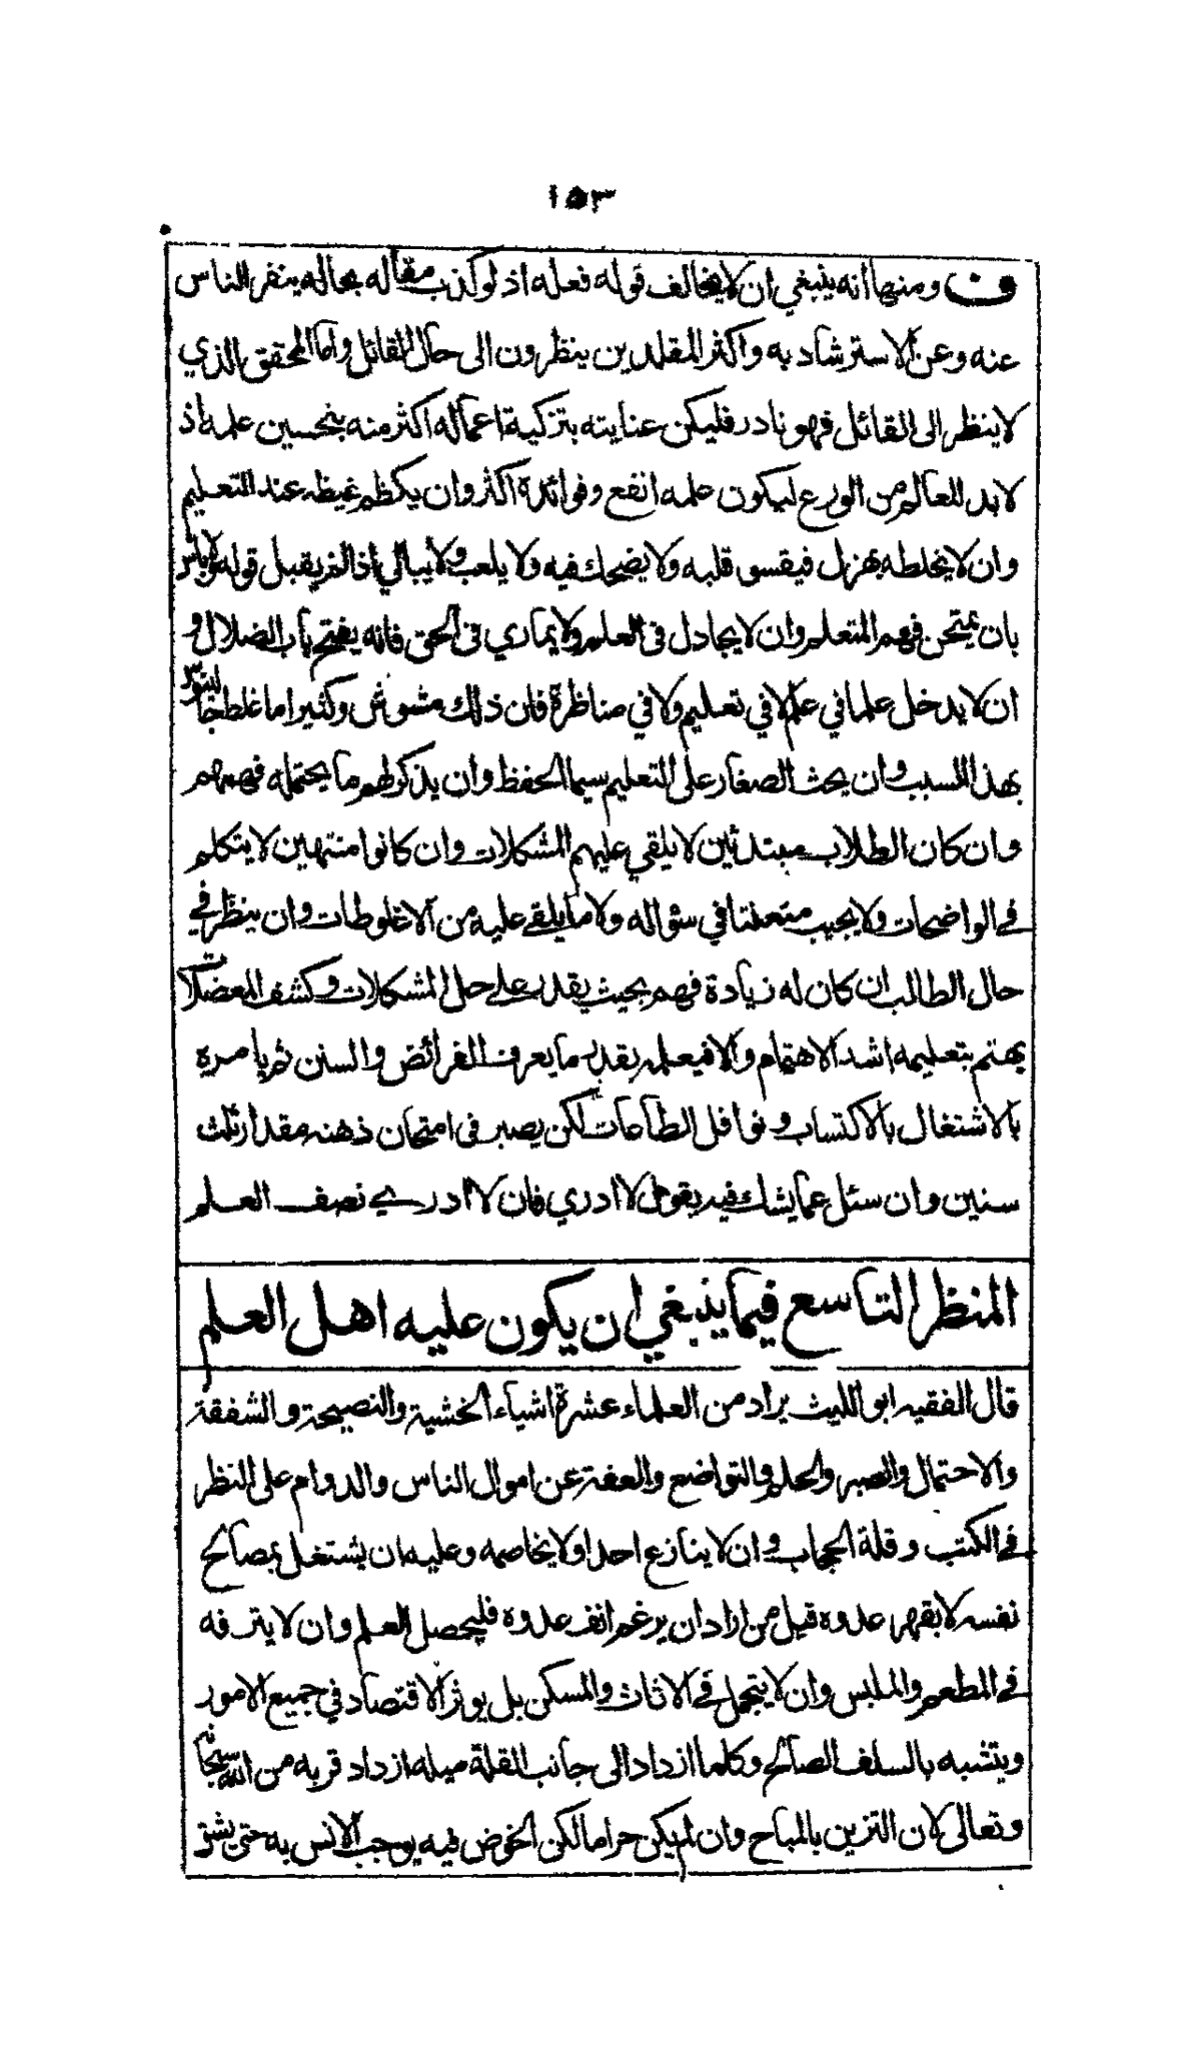 ١٥٣
ف ومنها انه ينبغي ان لا يخالف قوله فعله اذ لو كذب مقاله بحاله ينفر الناس
عنه وعن الاسترشاد به واكثر المقلدين ينظرون الى حال القائل واما المحقق الذي
لا ينظر الى القائل فهو نادر فليكن عنايته بتزكية اعماله اكثر منه بتحسين علمه اذ
لا بد للعالم من الورع ليكون علمه انفع وفوائده اكثر وان يكظم غيظه عند التعليم
وان لا يخلطه بهزل فيقسو قلبه ولا يضحك فيه ولا يلعب ولا يبالي اذا لم يقبل قوله ولا باس
بان يمتحن فهم المتعلم وان لا يجادل في العلم ولا يماري في الحق فانه يفتح باب الضلال و
ان لا يدخل علما في علم لا في تعليم ولا في مناظرة فان ذلك مشوش وكثيرا ما غلط جالينوس
بهذا السبب وان يحث الصغار على التعليم سيما الحفظ وان يذكر لهم ما يحتمله فهمهم
وان كان الطلاب مبتدئين لا يلقي عليهم المشكلات وان كانوا منتهين لا يتكلم
في الواضحات ولا يجيب متعنتا في سؤاله ولا ما يلقى عليه من الاغلوطات وان ينظر في
حال الطالب ان كان له زيادة فهم بحيث يقدر على حل المشكلات وكشف المعضلات
يهتم بتعليمه اشد الاهتمام والا فيعلمه بقدر ما يعرف الفرائض والسنن ثم يامره
بالاشتغال بالاكتساب ونوافل الطاعات لكن يصبر في امتحان ذهنه مقدار ثلث
سنين وان سئل عما يشك فيه يقول لا ادري فان لا ادري نصف العلم
المنظر التاسع فيما ينبغي ان يكون عليه اهل العلم
قال الفقيه ابو الليث يراد من العلماء عشرة اشياء الخشية والنصيحة والشفقة
والاحتمال والصبر والحلم والتواضع والعفة عن اموال الناس والدوام على النظر
في الكتب وقلة الحجاب وان لا ينازع احدا ولا يخاصمه وعليه ان يشتغل بمصالح
نفسه لا بقهر عدوه قيل من اراد ان يرغم انف عدوه فليحصل العلم وان لا يترفه
في المطعم والملبس وان لا يتجمل في الاثاث والمسكن بل يوثر الاقتصاد في جميع الامور
ويتشبه بالسلف الصالح وكلما ازداد الى جانب القلة ميله ازداد قربه من الله سبحانه
وتعالى لان التزين بالمباح وان لم يكن حراما لكن الخوض فيه يوجب الانس به حتى يشق